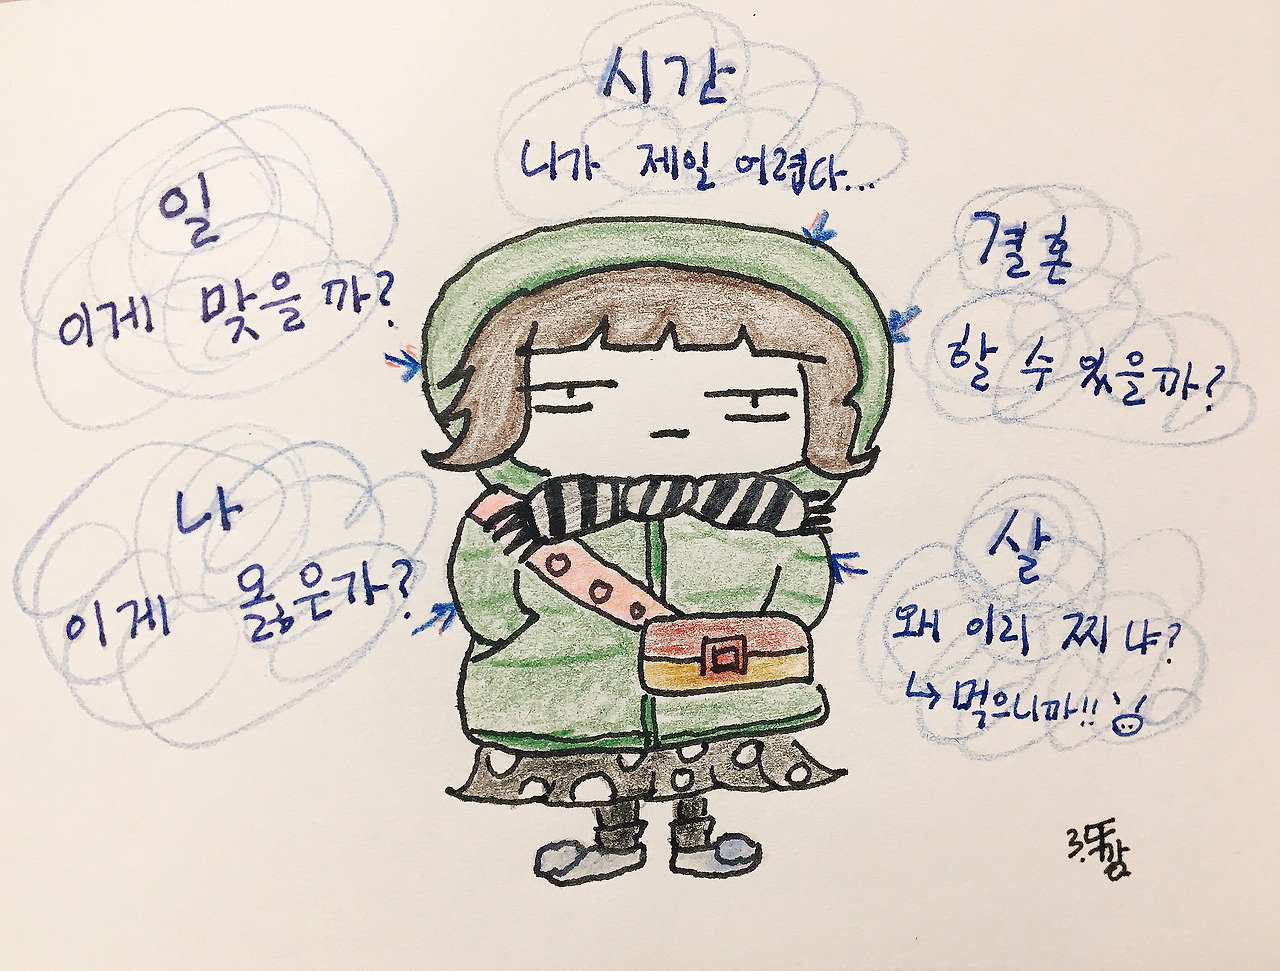 시간
니가 제일 어렵다...
일
이게 맞을까?
결혼
할 수 있을까?
나
이게 옳은가?
살
왜 이리 찌냐?
↳ 먹으니까!!
3.뚀깡